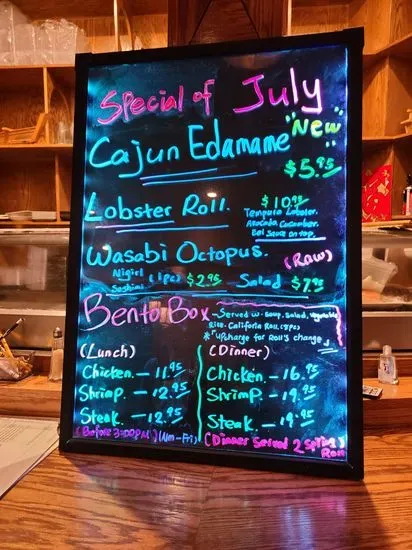 Special of July
Cajun Edamame "New"
$5.95
Lobster Roll. $10.95
Tempura Lobster.
Avocado Cucumber.
Eel Sauce on top.
Wasabi Octopus. (Raw)
Nigiri
Sashimi (1pc) $2.95 Salad $7.95
Bento Box - Served w. Soup, Salad, Vegetable
Rice. Califoria Roll (3pcs)
* "upcharge for Roll's change"
(Lunch) (Dinner)
Chicken. - 11.95 Chicken. - 16.95
Shrimp. - 12.95 Shrimp. - 19.95
Steak. - 12.95 Steak. - 19.95
(Before 3:00PM) (Mon-Fri) (Dinner Served 2 Spring
Roll)